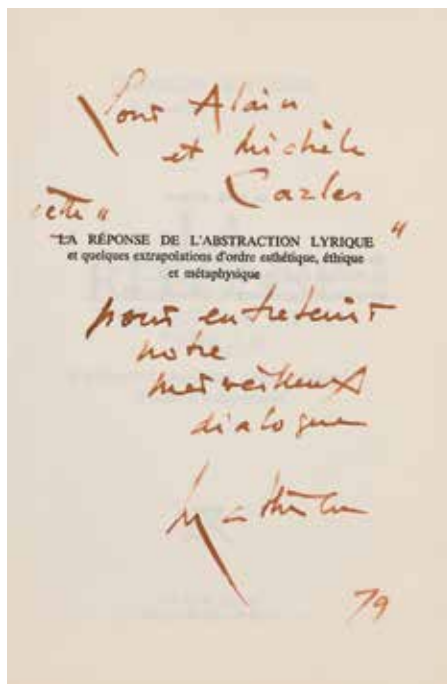 Pour Alain
et Michèle
Carles
cette "
LA RÉPONSE DE L'ABSTRACTION LYRIQUE "
et quelques extrapolations d'ordre esthétique, éthique
et métaphysique
pour entretenir
notre
merveilleux
dialogue
Mathieu
79